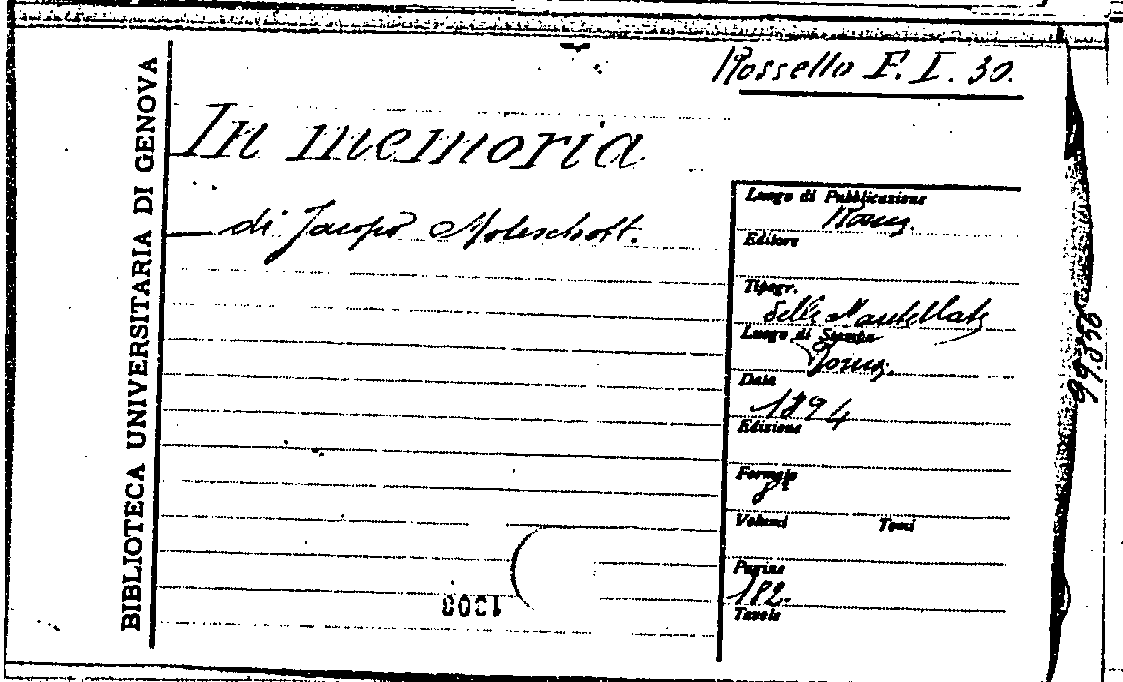 Rossello F. I. 30.
BIBLIOTECA UNIVERSITARIA DI GENOVA
In memoria
di Jacopo Moleschott.
Luogo di Pubblicazione
Roma.
Editore
Tipogr.
delle Mantellate
Luogo di Stampa
Roma.
Data
1894
Edizione
Formato
8°
Volumi Tomi
Pagine
182.
Tavole